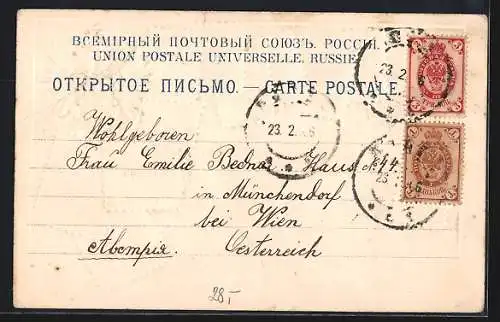 ВСЕМІРНЫЙ ПОЧТОВЫЙ СОЮЗЪ. РОССІЯ.
UNION POSTALE UNIVERSELLE. RUSSIE
ОТКРЫТОЕ ПИСЬМО. — CARTE POSTALE.
23.2
23.2. 6
Wohlgeboren
Frau Emilie Haus 44.
23 6
in Münchendorf
bei Wien
Австрія. Oesterreich
28,-